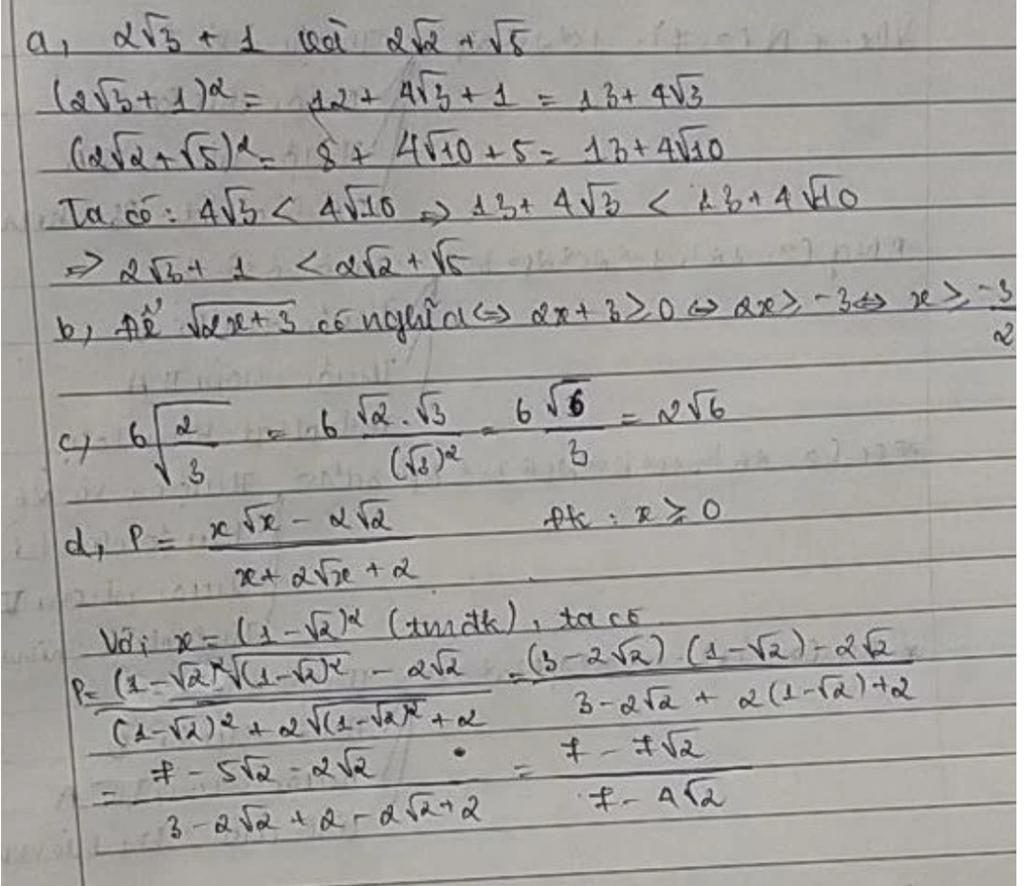 a, 2√3 + 1 và 2√2 + √5
(2√3 + 1)² = 12 + 4√3 + 1 = 13 + 4√3
(2√2 + √5)² = 8 + 4√10 + 5 = 13 + 4√10
Ta có: 4√3 < 4√10 => 13 + 4√3 < 13 + 4√10
=> 2√3 + 1 < 2√2 + √5
b, Để √(2x+3) có nghĩa <=> 2x + 3 ≥ 0 <=> 2x ≥ -3 <=> x ≥ -3/2
c, 6√(2/3) = 6 (√2.√3)/(√3)² = 6 √6/3 = 2√6
d, P = (x√x - 2√2)/(x + 2√x + 2) đk : x ≥ 0
Với x = (1-√2)² (tmđk), ta có
P = ((1-√2)²√((1-√2)²) - 2√2)/((1-√2)² + 2√((1-√2)²) + 2) = ((3-2√2)(1-√2) - 2√2)/(3-2√2 + 2(1-√2)+2)
= (7 - 5√2 - 2√2)/(3 - 2√2 + 2 - 2√2 + 2) = (7 - 7√2)/(7 - 4√2)